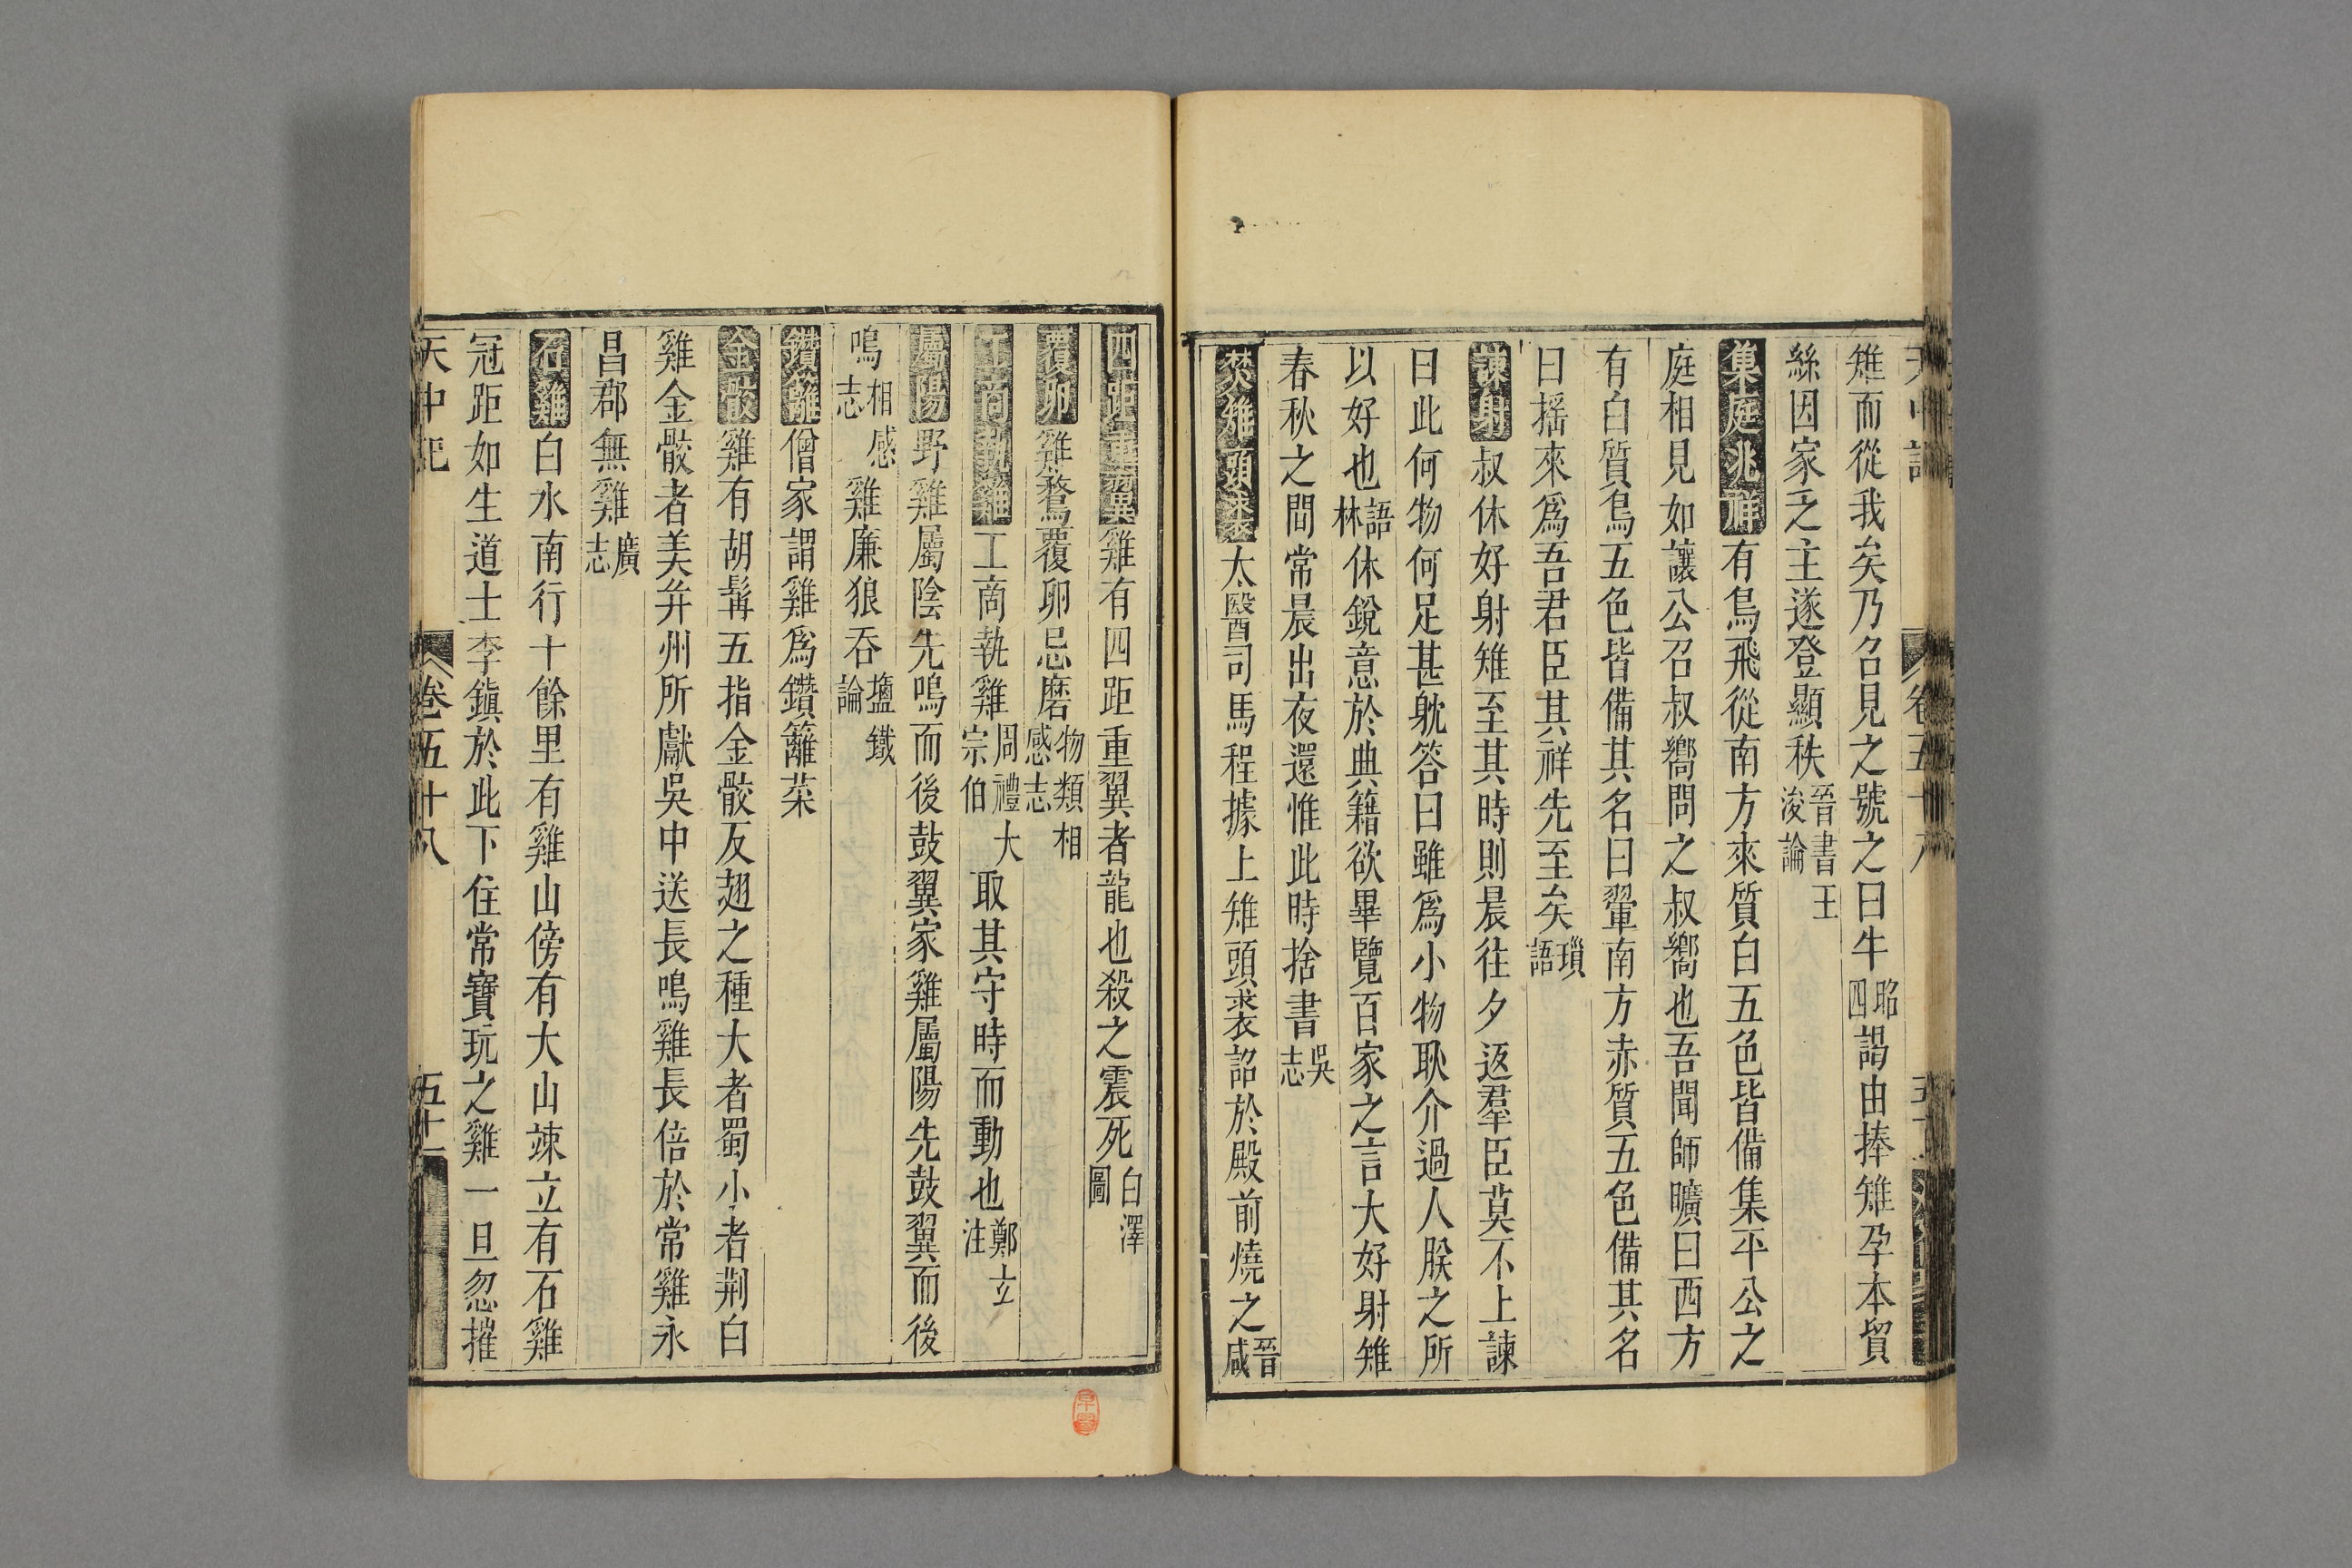 雉而從我矣乃召見之號之曰牛昭四謁由捧雉孕本貿
絲因家之主遂登顯秩晉書王浚論
集庭兆祥有鳥飛從南方來質白五色皆備集平公之
庭相見如讓公召叔嚮問之叔嚮也吾聞師曠曰西方
有白質鳥五色皆備其名曰翬南方赤質五色備其名
曰搖來爲吾君臣其祥先至矣瑣語
諫射叔休好射雉至其時則晨往夕返羣臣莫不上諫
曰此何物何足甚躭答曰雖爲小物耿介過人朕之所
以好也語林休銳意於典籍欲畢覽百家之言大好射雉
春秋之間常晨出夜還惟此時捨書吳志
焚雉頭裘太醫司馬程據上雉頭裘詔於殿前燒之晉咸
四距重翼雞有四距重翼者龍也殺之震死白澤圖
覆卵雞鶩覆卵忌磨物類相感志
工商執雞工商執雞周禮大宗伯取其守時而動也鄭立注
屬陽野雞屬陰先鳴而後鼓翼家雞屬陽先鼓翼而後
鳴相感志雞廉狼吞鹽鐵論
鑽籬僧家謂雞爲鑽籬菜
金骹雞有胡髯五指金骹反翅之種大者蜀小者荆白
雞金骹者美并州所獻吳中送長鳴雞長倍於常雞永
昌郡無雞廣志
石雞白水南行十餘里有雞山傍有大山竦立有石雞
冠距如生道士李鎮於此下住常寶玩之雞一旦忽摧
天中記 卷五十八 五十一